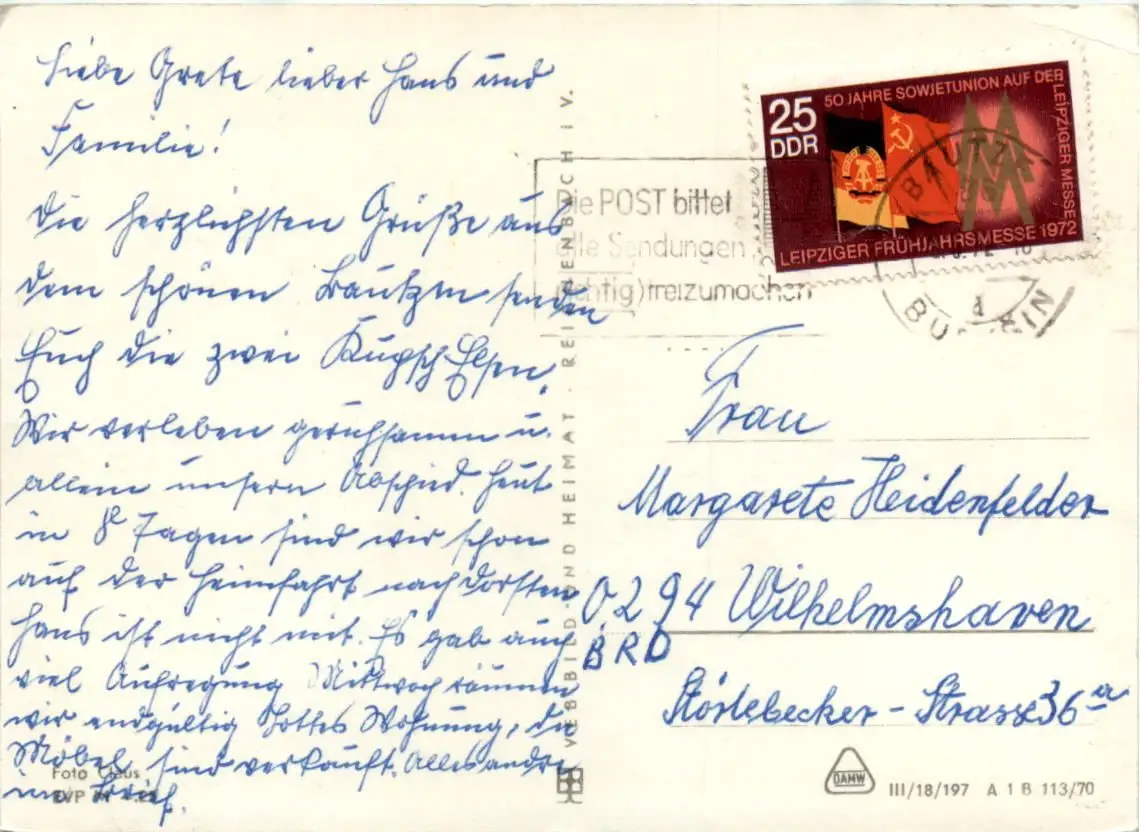 Liebe Grete lieber Hans und
Familie!
Die herzlichsten Grüße aus
dem schönen Bautzen senden
Euch die zwei Kupsch Elsen.
Wir verleben geruhsamm u.
allein unsern Abschied. Heut
in 8 Tagen sind wir schon
auf der Heimfahrt nach Dorsten
Hans ist nicht mit. Es gab auch
viel Aufregung Mittwoch räumen
wir endgültig Lottes Wohnung, die
Möbel sind verkauft. Alles andre
im Brief.
Foto Claus
EVP M
VEB BILD UND HEIMAT · REICHENBACH I V.
25
DDR
50 JAHRE SOWJETUNION AUF DER LEIPZIGER MESSE
LEIPZIGER FRÜHJAHRSMESSE 1972
Die POST bittet
alle Sendungen
freizumachen
BAUTZEN
BUDYŠIN
Frau
Margarete Heidenfelder
0294 Wilhelmshaven
BRD
Störtebecker-Strasse 36a
DAMW
III/18/197 A 1 B 113/70